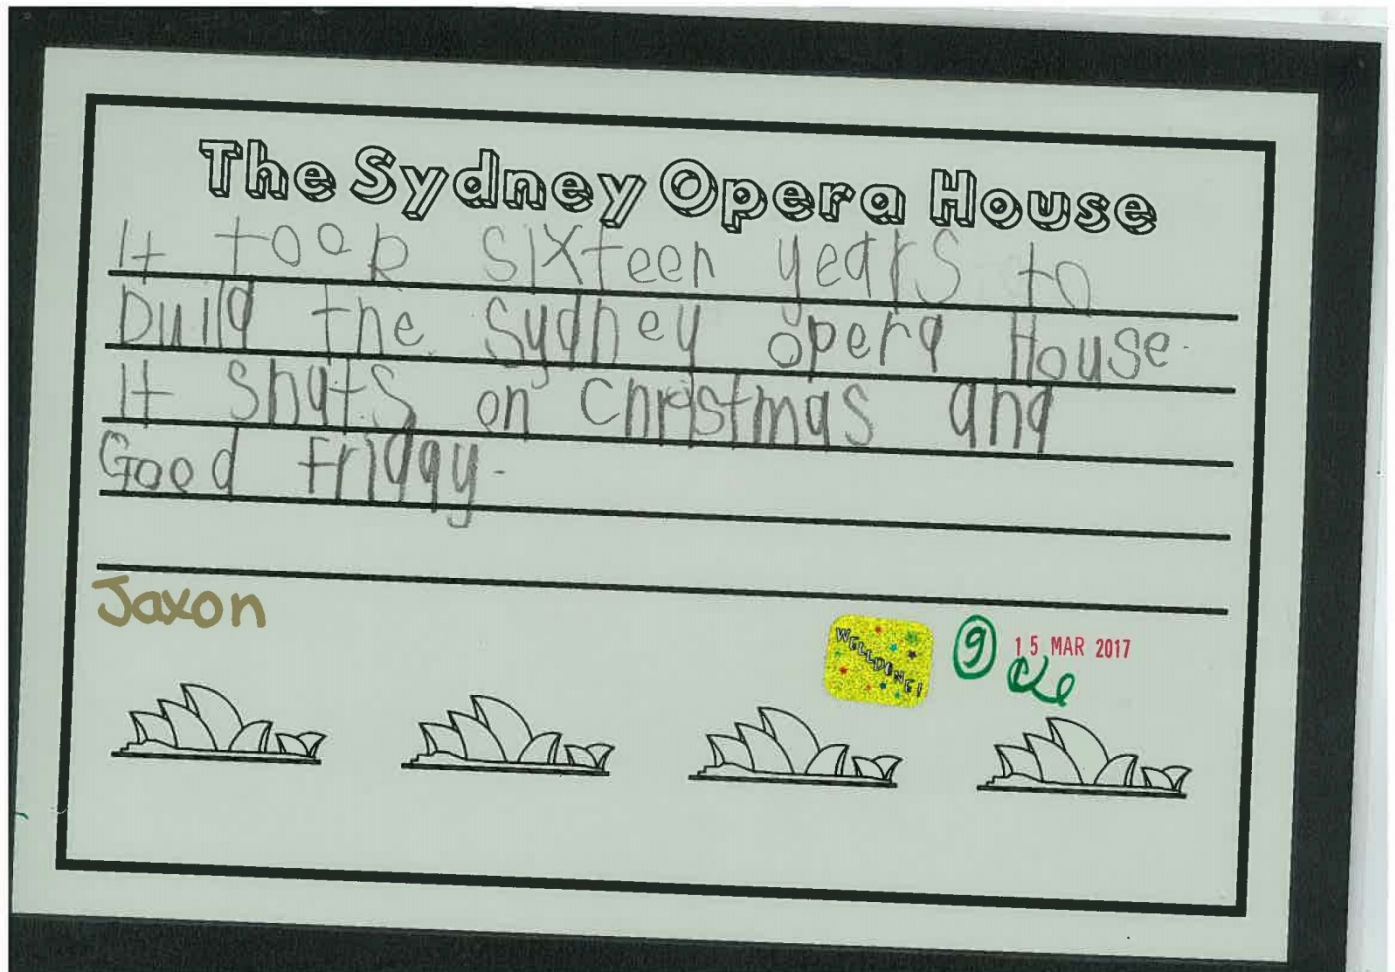 The Sydney Opera House
It took sixteen years to
build the Sydney opera House.
It shuts on Christmas and
Good Friday.
Jaxon
WELLDONE!
9
15 MAR 2017